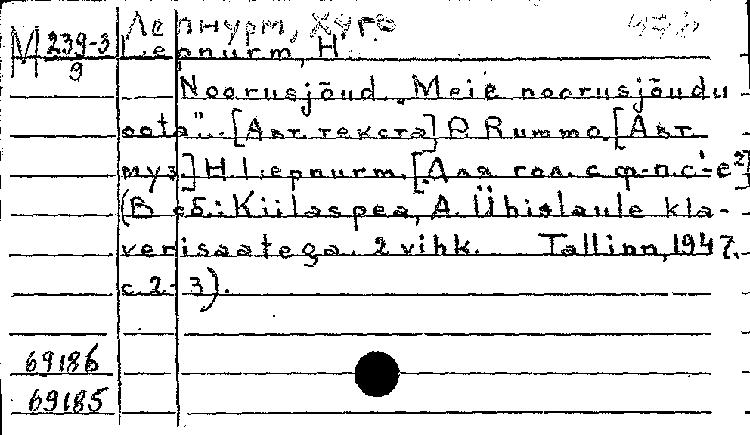 Лепнурм, Хуго
М 239-3
9
Lepnurm, H.
Noorusjõud. "Meie noorusjõudu
oota"... [Авт. текста] P. Rummo. [Авт.
муз.] H. Lepnurm. [Для гол. с ф-п. c¹-e²]
(В сб.: Kiilaspea, A. Ühislaule kla-
verisaatega. 2 vihk. Tallinn, 1947.
с. 2-3).
69186
69185